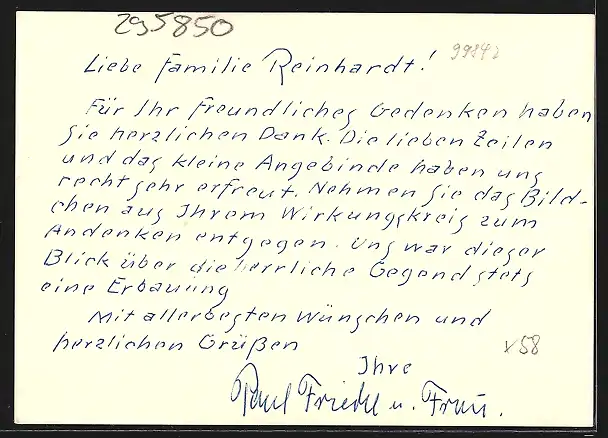 295850
Liebe Familie Reinhardt!
99842
Für Ihr freundliches Gedenken haben
Sie herzlichen Dank. Die lieben Zeilen
und das kleine Angebinde haben uns
recht sehr erfreut. Nehmen Sie das Bild-
chen aus Ihrem Wirkungskreis zum
Andenken entgegen. Uns war dieser
Blick über die herrliche Gegend stets
eine Erbauung
Mit allerbesten Wünschen und
herzlichen Grüßen
v58
Ihre
Paul Friedel u. Frau.